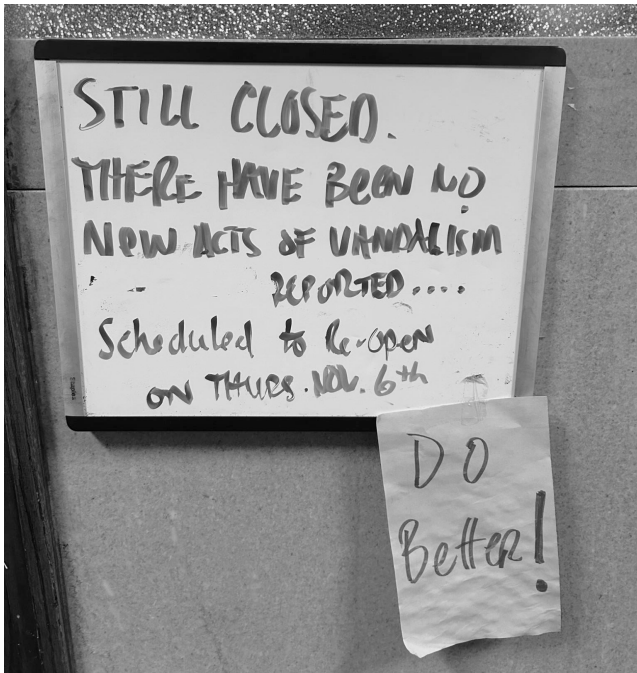 STILL CLOSED.
THERE HAVE BEEN NO
NEW ACTS OF VANDALISM
REPORTED....
Scheduled to Re-open
ON THURS. NOV. 6th
DO
Better!